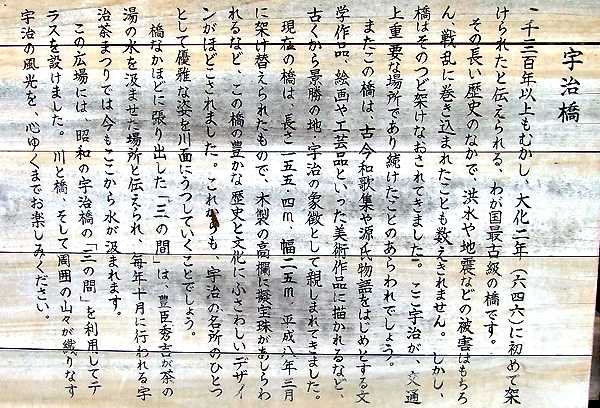 宇治橋
一千三百年以上もむかし、大化二年(六四六)に初めて架
けられたと伝えられる、わが国最古級の橋です。
その長い歴史のなかで、洪水や地震などの被害はもちろ
ん、戦乱に巻き込まれたことも数えきれません。しかし、
橋はそのつど架けなおされてきました。ここ宇治が、交通
上重要な場所であり続けたことのあらわれでしょう。
またこの橋は、古今和歌集や源氏物語をはじめとする文
学作品、絵画や工芸品といった美術作品に描かれるなど、
古くから景勝の地、宇治の象徴として親しまれてきました。
現在の橋は、長さ一五五・四m、幅二五m、平成八年三月
に架け替えられたもので、木製の高欄に擬宝珠があしらわ
れるなど、この橋の豊かな歴史と文化にふさわしいデザイ
ンがほどこされました。これからも、宇治の名所のひとつ
として優雅な姿を川面にうつしていくことでしょう。
橋なかほどに張り出した「三の間」は、豊臣秀吉が茶の
湯の水を汲ませた場所と伝えられ、毎年十月に行われる宇
治茶まつりでは今もここから水が汲まれます。
この広場には、昭和の宇治橋の「三の間」を利用してテ
ラスを設けました。川と橋、そして周囲の山々が織りなす
宇治の風光を、心ゆくまでお楽しみください。